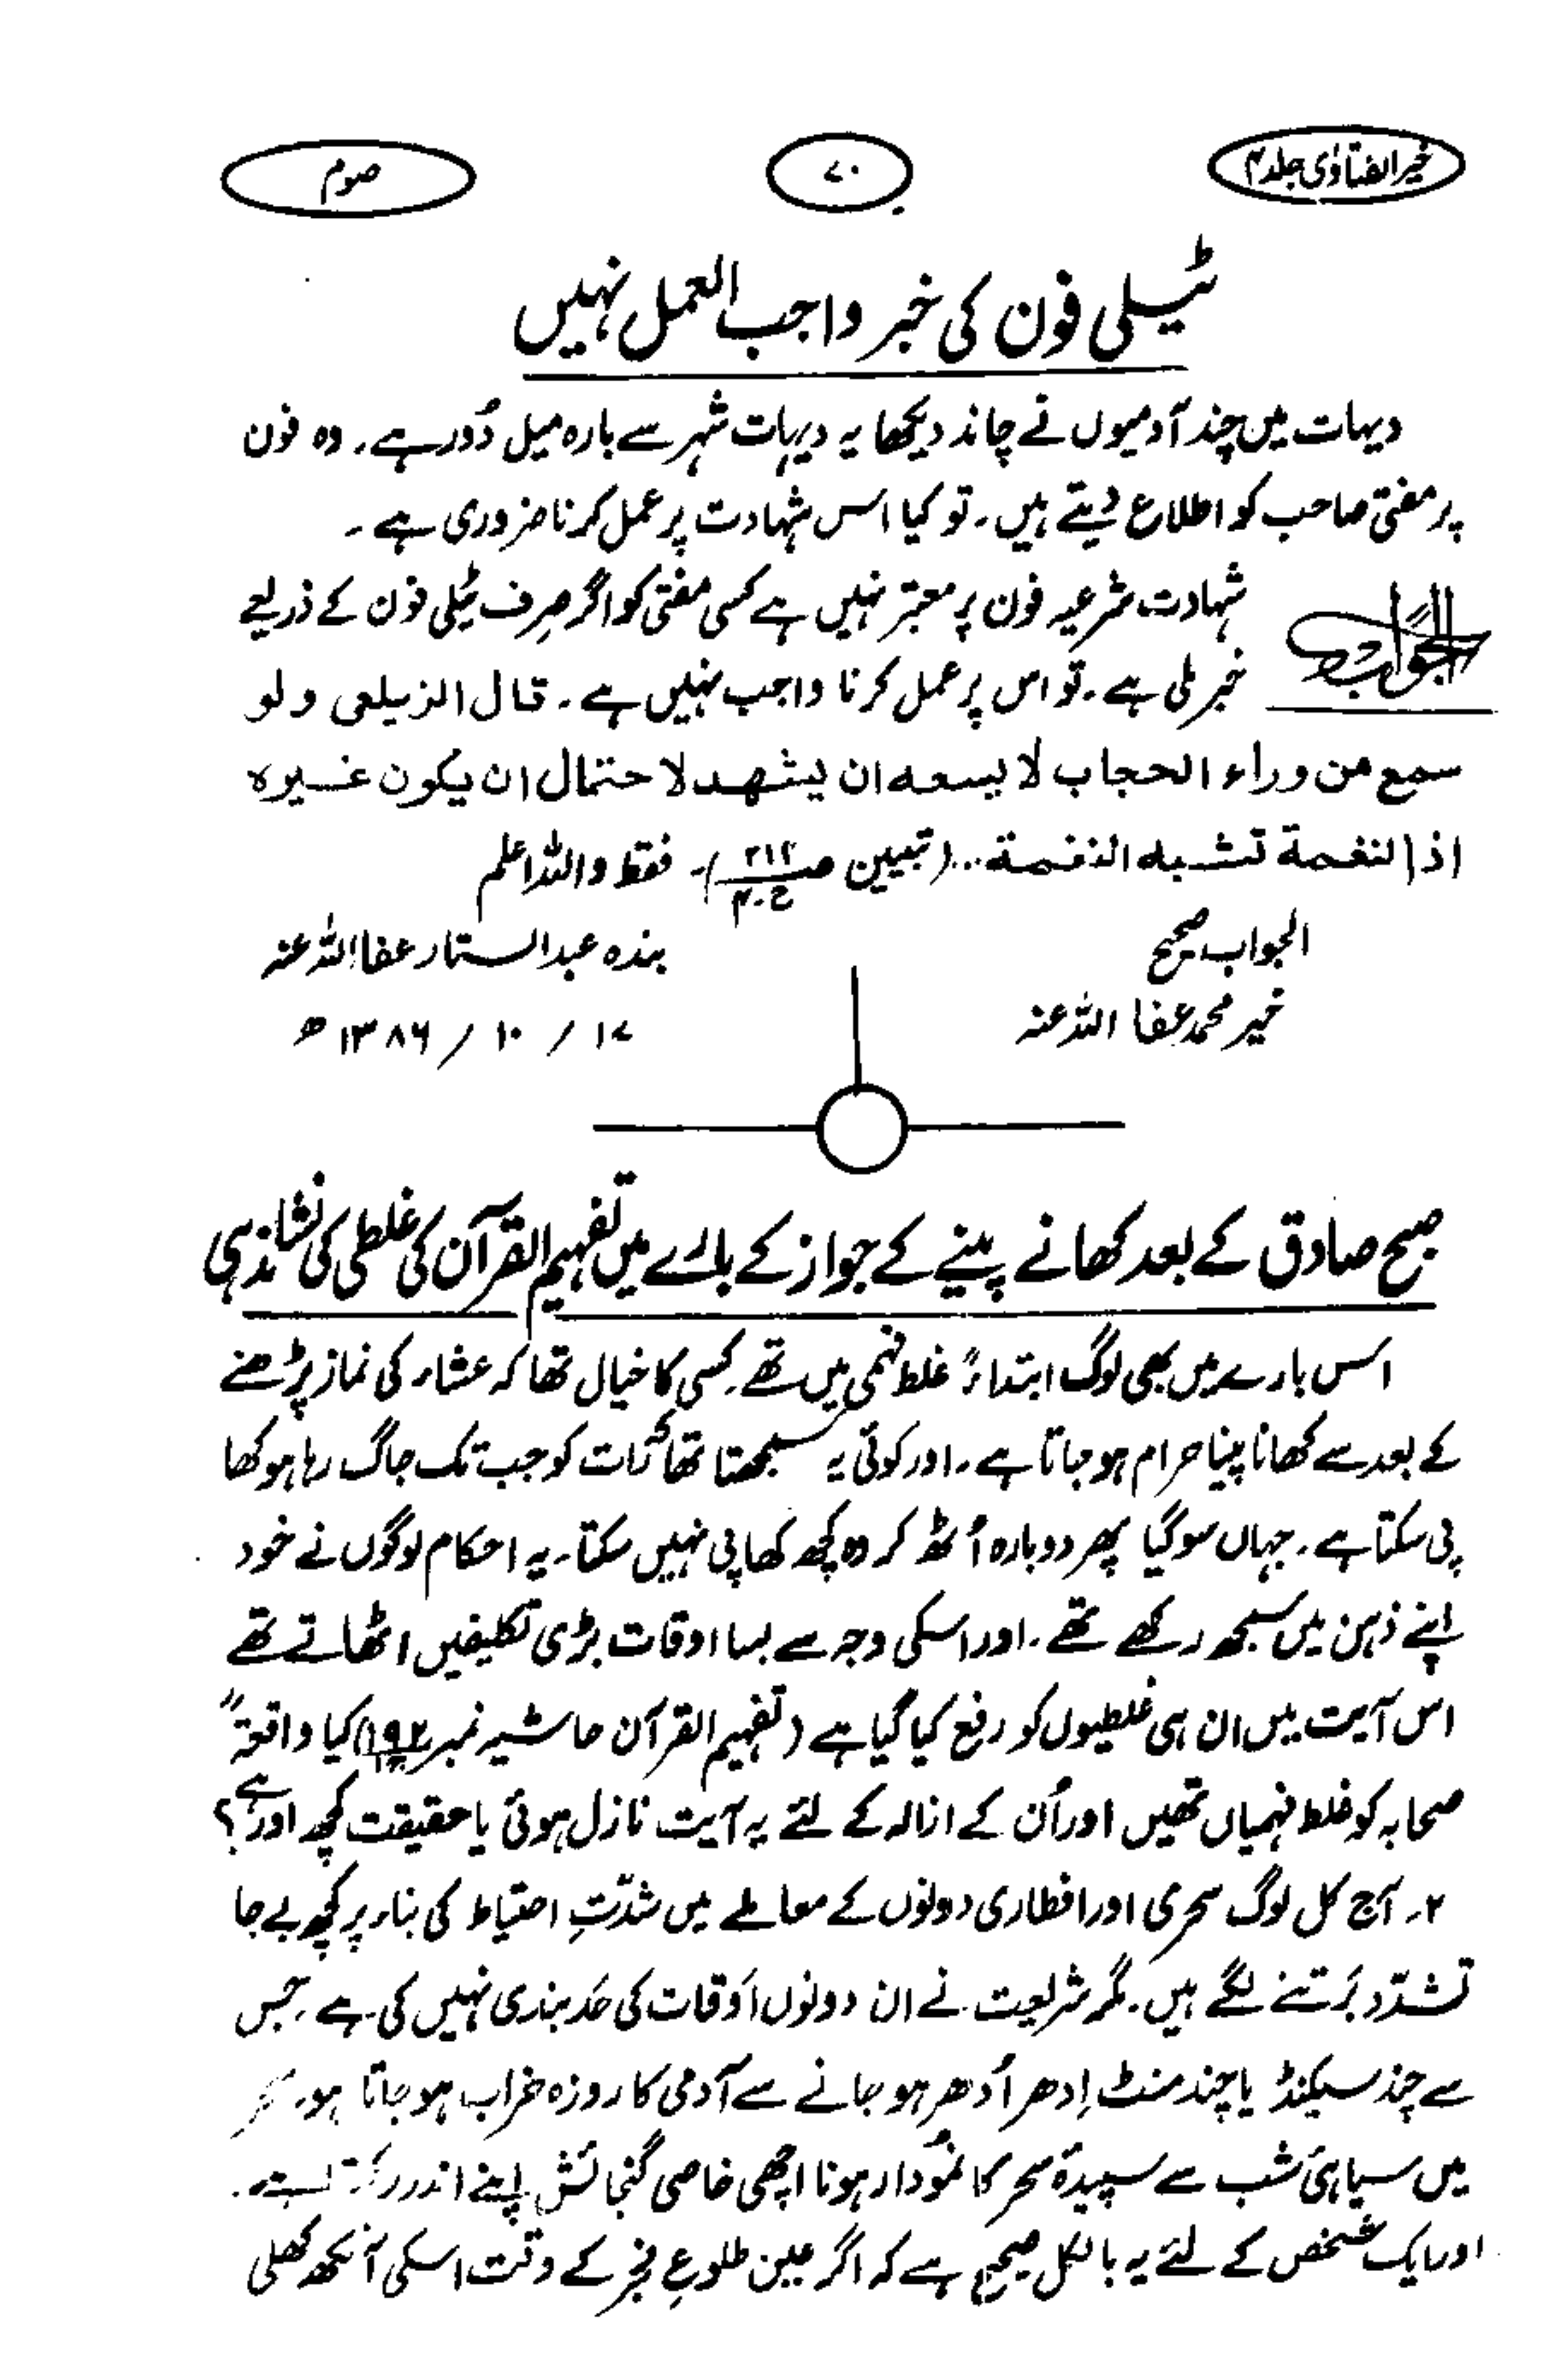 خیر الفتاوی جلد ۴
۷۰
صوم
ٹیلی فون کی خبر واجب العمل نہیں
دیہات میں چند آدمیوں نے چاند دیکھا یہ دیہات شہر سے بارہ میل دُور ہے۔ وہ فون
پر مفتی صاحب کو اطلاع دیتے ہیں۔ تو کیا اس شہادت پر عمل کرنا ضروری ہے۔
الجواب
شہادت شرعیہ فون پر معتبر نہیں ہے کسی مفتی کو اگر صِرف ٹیلی فون کے ذریعے
خبر ملی ہے۔ تو اس پر عمل کرنا واجب نہیں ہے۔ قال الزیلعی ولو
سمع من وراء الحجاب لا یسعہ ان یشھد لاحتمال ان یکون غیرہ
اذ النغمة تشبہ النغمة...(تبیین ص۲۱۴ ج۴)۔ فقط واللہ اعلم
الجواب صحیح
بندہ عبدالستار عفا اللہ عنہ
خیر محمد عفا اللہ عنہ
۱۷ / ۱۰ / ۱۳۸۶ ھ
صبح صادق کے بعد کھانے پینے کے جواز کے بارے میں تفہیم القرآن کی غلطی کی نشاندہی
اس بارے میں بھی لوگ ابتداءً غلط فہمی میں تھے۔ کسی کا خیال تھا کہ عشاء کی نماز پڑھنے
کے بعد سے کھانا پینا حرام ہو جاتا ہے۔ اور کوئی یہ سمجھتا تھا کہ رات کو جب تک جاگ رہا ہو کھا
پی سکتا ہے۔ جہاں سو گیا پھر دوبارہ اُٹھ کر وہ کچھ کھا پی نہیں سکتا۔ یہ احکام لوگوں نے خود
اپنے ذہن میں سمجھ رکھے تھے۔ اور اسکی وجہ سے بسا اوقات بڑی تکلیفیں اٹھاتے تھے
اس آیت میں ان ہی غلطیوں کو رفع کیا گیا ہے (تفہیم القرآن حاشیہ نمبر ۱۹۲) کیا واقعۃً
صحابہ کو غلط فہمیاں تھیں اور اُن کے ازالہ کے لئے یہ آیت نازل ہوئی یا حقیقت کچھ اور ہے؟
۲۔ آج کل لوگ سحری اور افطاری دونوں کے معاملے میں شدّتِ احتیاط کی بناء پر کچھ بے جا
تشدّد بَرتنے لگے ہیں۔ مگر شریعت نے ان دونوں اَوقات کی حَد بندی نہیں کی ہے۔ جس
سے چند سیکنڈ یا چند منٹ اِدھر اُدھر ہو جانے سے آدمی کا روزہ خراب ہو جاتا ہو۔ سحر
میں سیاہیٔ شب سے سپیدۂ سحر کا نمُودار ہونا اچھی خاصی گنجائش اپنے اندر رکھتا ہے۔
اور ایک شخص کے لئے یہ بالکل صحیح ہے کہ اگر عین طلوعِ فجر کے وقت اسکی آنکھ کھلی